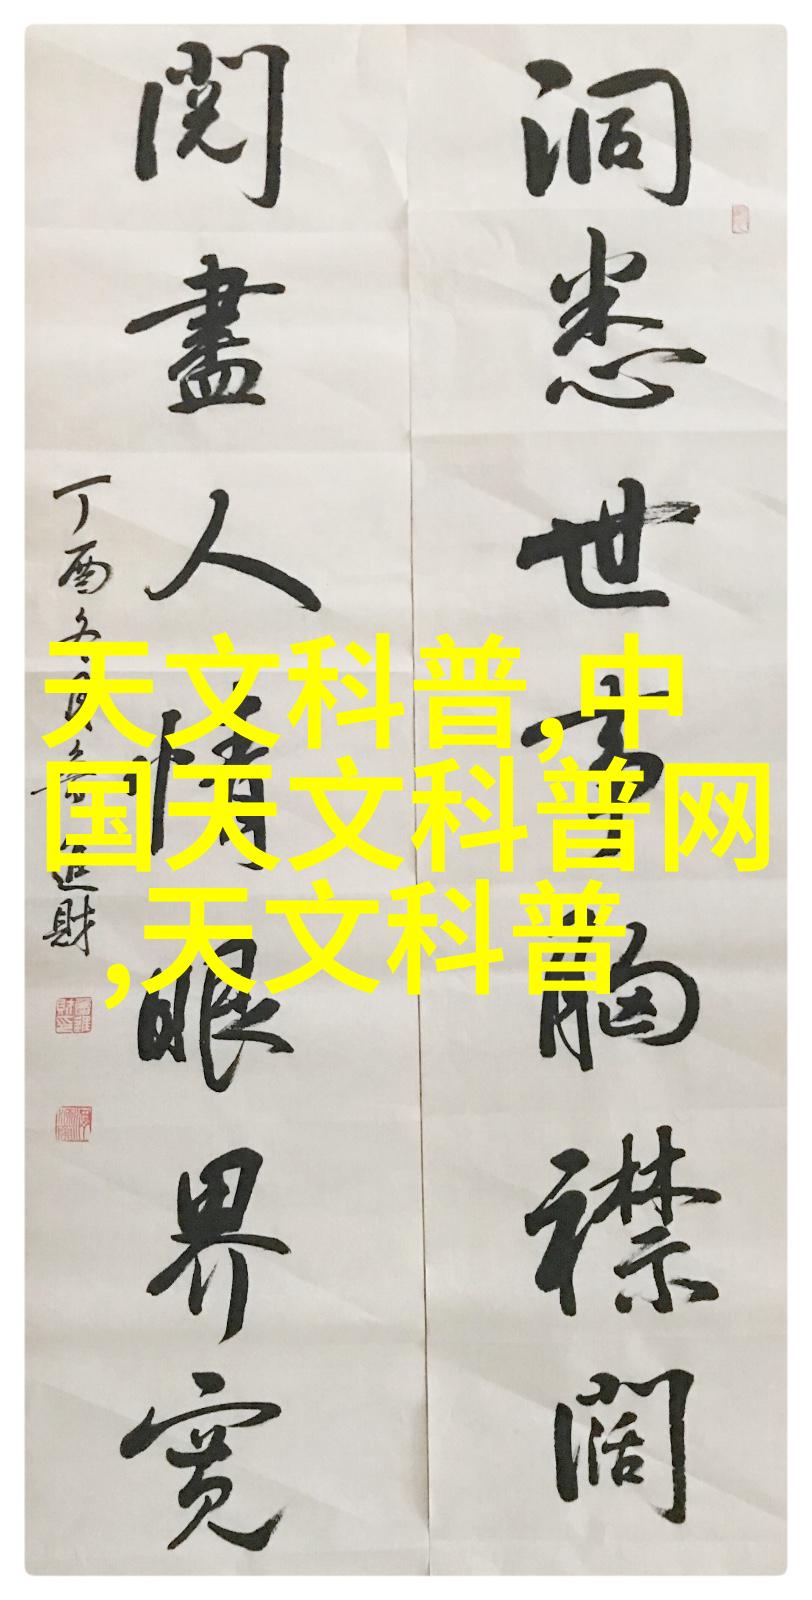 洞悉世事胸襟阔
阅尽人情眼界宽
丁酉冬月
进财
天文科普,中
国天文科普网
,天文科普